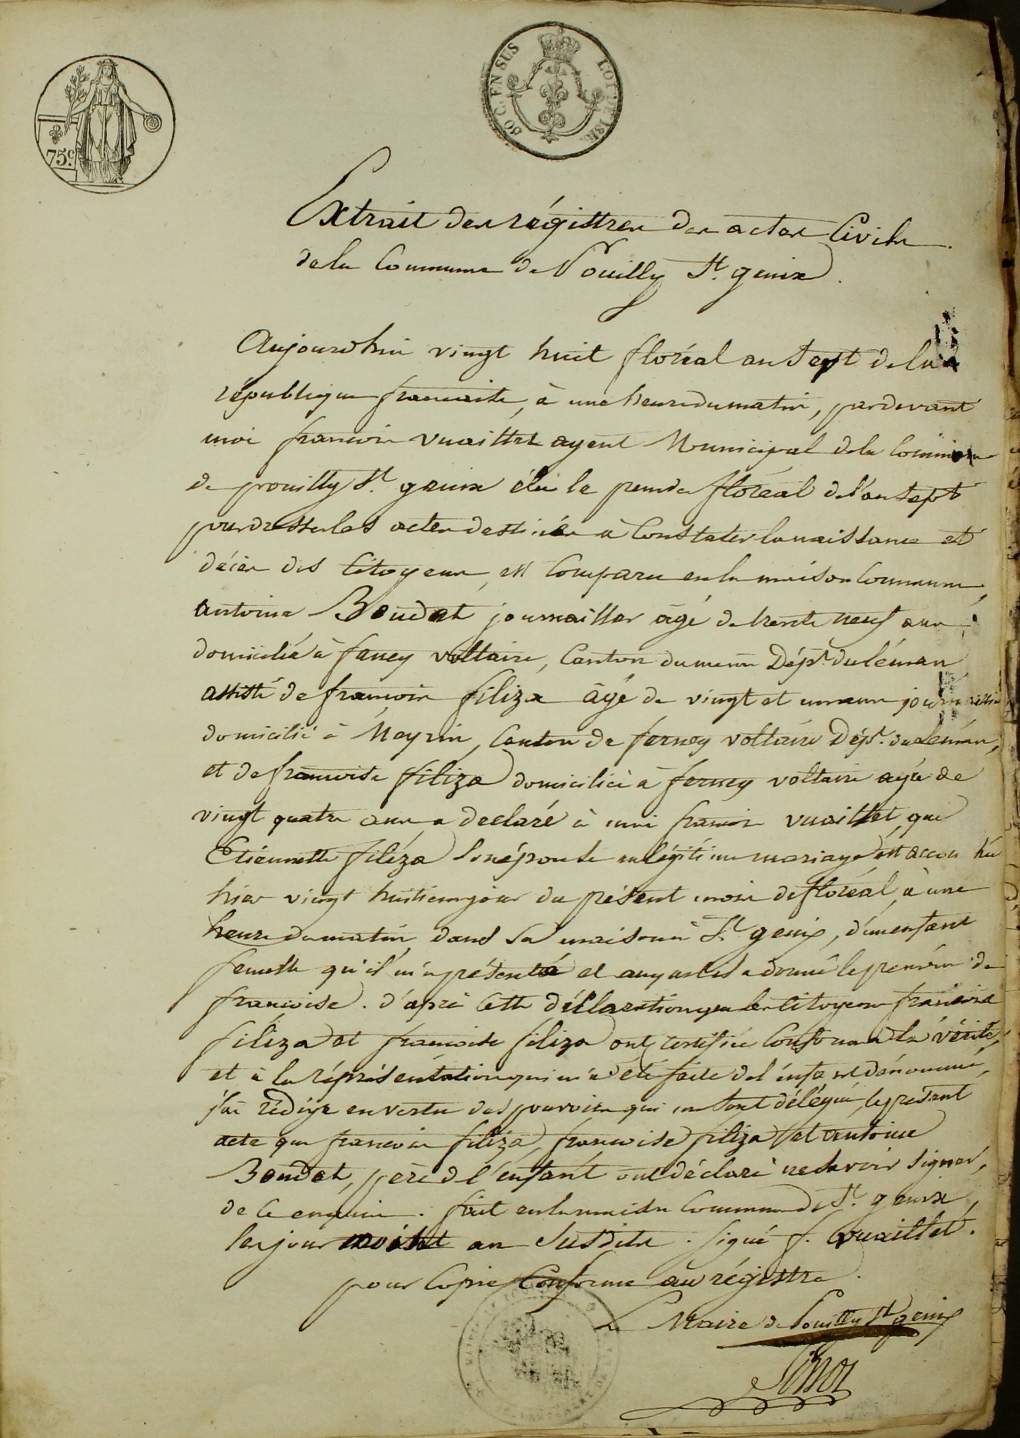 75c.
50 C. EN SUS
Extrait des régistres des actes Civils
de la Commune de Pouilly St. genix
Aujourdhui vingt huit floréal an sept de la
république francaise, à une heure du matin, pardevant
moi francois vuaillet agent Municipal de la Commune
de prouilly St. genix élu le premier floréal de l'an sept
pour dresser les actes destinés a Constater la naissance et
décès des Citoyens, est Comparu en la maison Commune,
antoine Boudet journaillier âgé de trente neuf ans
domicilié à ferney voltaire, Canton du meme Dépt. du léman
assisté de francois filiza âgé de vingt et un ans journaillier
domicilié à Meyrin, Canton de ferney voltaire Dépt. du Léman,
et de francoise filiza domiciliée à ferney voltaire agée de
vingt quatre ans a declaré à moi francois vuaillet, que
Etiennette filiza son épouse en légitime mariage est accouchée
hier vingt huitieme jour du présent mois de floréal, à une
heure du matin, dans sa maison à St. genix, d'un enfant
femelle qu'il m'a présenté et auquel il a donné le prenom de
francoise. d'après cette déllaration que les Citoyens francois
filiza et francoise filiza ont certifiée Conforme à la vérité,
et à la réprésentation qui m'a été faite de l'enfant dénommé,
j'ai rédigé en vertu des pouvoirs qui me sont délégués, le présent
acte que francois filiza, francoise filiza et antoine
Boudet, père de l'enfant ont déclaré ne savoir signer,
de ce enquis. fait en la maison Commune de St. genix,
les jour mois et an susdits. signé f. vuaillet.
pour Copie Conforme au régistre.
Le Maire de Pouilly St. genix